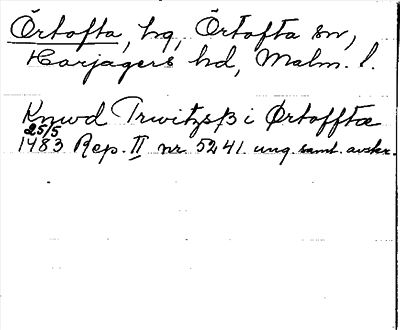 Örtofta, hg, Örtofta sn,
Harjagers hd, Malm. l.
Knwd Trwitzsß i Ørtofftæ
25/5
1483 Rep. II nr 5241. ung. samt. avskr.